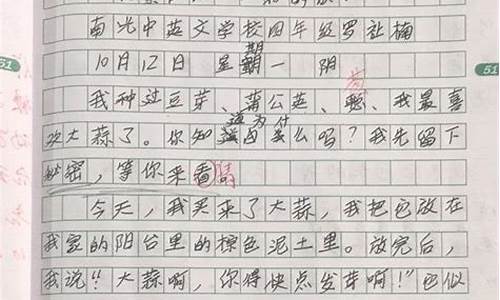 南光中英文学校四年级罗祉楠
10月12日 星期一 阴
我种过豆芽、蒲公英、葱、我最喜
欢大蒜了。你知道为什么吗?我先留下
秘密,等你来看猜。
今天,我买来了大蒜,我把它放在
我家的阳台里的棕色泥土里。放完后,
我说“大蒜啊,你得快点发芽啊!”它似
51